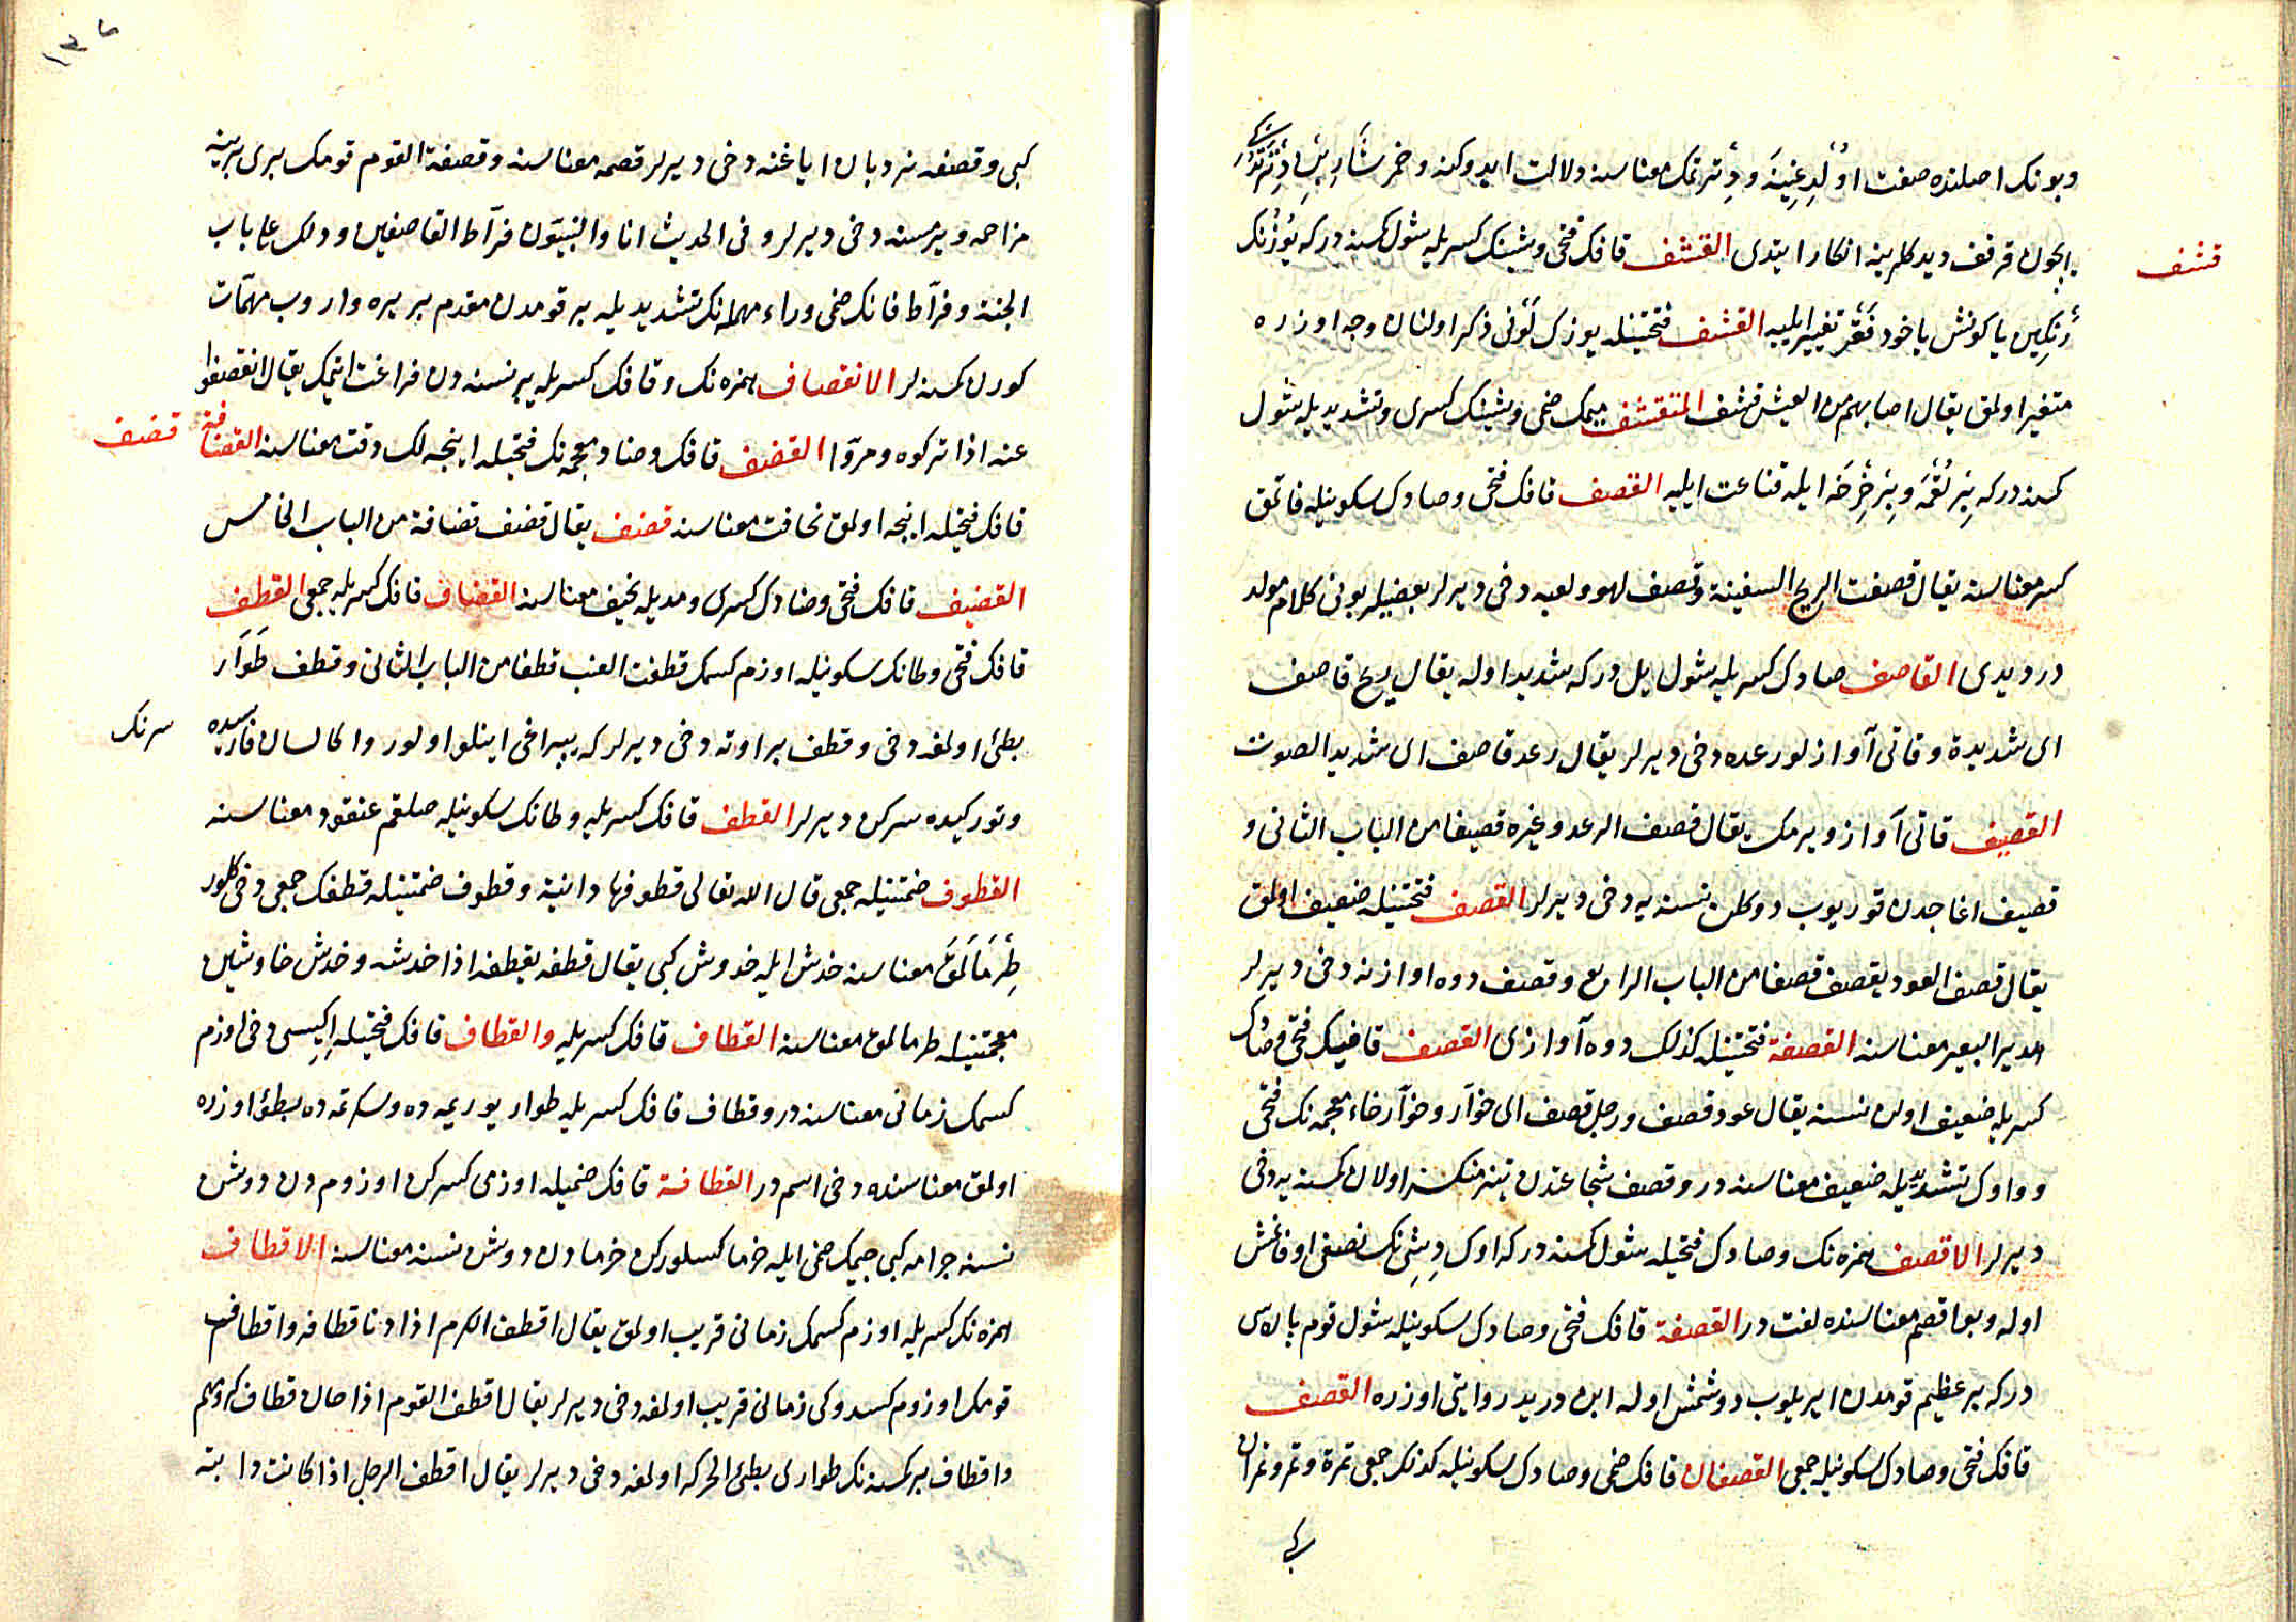 وبونك اصلنده صفت اولديغينه و دترتمك معناسنه دلالت ايدوكنه و خمر شاربنى دترتدوكى
ايچون قرقف ديدكلرينه انكار ايتدى القشف قافك فتحى وشينك كسريله شول كمسنه دركه يوزنك
قشف
رنكين يا كونش ياخود فقر تغيير ايليه القشف فتحتينله يوزك لونى ذكر اولنان وجه اوزره
متغير اولمق يقال اصابهم من العيش قشف المتقشف ميمك ضمى وشينك كسرى وتشديديله شول
كمسنه دركه بر لقمه و بر خرخه ايله قناعت ايليه القصف قافك فتحى وصادك سكونيله قاتمق
كسر معناسنه يقال قصفت الريح السفينة وقصف لهو ولعبه دخى ديرلر بعضيلر بونى كلام مولد
در ديدى القاصف صادك كسريله شول يل دركه شديد اوله يقال ريح قاصف
اى شديدة وقاتى آوازلو رعده دخى ديرلر يقال رعد قاصف اى شديد الصوت
القصيف قاتى آواز ويرمك يقال قصف الرعد وغيره قصيفا من الباب الثانى و
قصيف اغاجدن قوريوب دوكلن نسنه يه دخى ديرلر القصف فتحتينله ضعيف اولمق
يقال قصف العود يقصف قصفا من الباب الرابع وقصف دوه اوازنه دخى ديرلر
هدير البعير معناسنه القصفة فتحتينله كذلك دوه آوازى القصف قافك فتحى وصادك
كسريله ضعيف اولن نسنه يقال عود قصف ورجل قصف اى خوار وخوار خاء معجمه نك فتحى
و واوك تشديديله ضعيف معناسنه در وقصف شجاعتدن تيز منكسر اولان كمسنه يه دخى
ديرلر الاقصف همزه نك وصادك فتحيله شول كمسنه دركه اوك ديشنك نصفى اوفانمش
اوله وبو اقصم معناسنده لغت در القصفة قافك فتحى وصادك سكونيله شول قوم پاره سى
دركه بر عظيم قومدن ايريلوب دوشمش اوله ابن دريد روايتى اوزره القصف
قافك فتحى وصادك سكونيله جمعى القصفان قافك ضمى وصادك سكونيله كذلك جمعى تمرة وتمر وتمران
كبى
١٣٦
كبى وقصفه نردبان اياغنه دخى ديرلر قصمه معناسنه وقصفة القوم قومك برى برينه
مزاحمه ويرمسنه دخى ديرلر وفى الحديث انا والنبيون فراط القاصفين وذلك على باب
الجنة وفراط فانك ضمى وراء مهمله نك تشديديله بر قومدن مقدم بر يره واروب مهمات
كورن كمسنه لر الانقصاف همزه نك وقافك كسريله بر نسنه دن فراغت ايتمك يقال انقصفوا
عنه اذا تركوه ومروا القضف قافك وضاد معجمه نك فتحيله اينجه لك دقت معناسنه القضافة
قضف
قافك فتحيله اينجه اولمق نحافت معناسنه قضف يقال قضف قضافة من الباب الخامس
القضيف قافك فتحى وضادك كسرى ومديله نحيف معناسنه القضاف قافك كسريله جمعى القطف
قافك فتحى وطانك سكونيله اوزم كسمك قطفت العنب قطفا من الباب الثانى وقطف طوار
بطئ اولمغه دخى وقطف بر اوته دخى ديرلر كه يپراغى اينلو اولور واكا لسان فارسيده
سرنك
وتوركيده سركن ديرلر القطف قافك كسريله وطانك سكونيله صلقم عنقود معناسنه
القطوف ضمتينله جمعى قال الله تعالى قطوفها دانية وقطوف ضمتينله قطفك جمعى دخى كلور
طرمالمق معناسنه خدش ايله خدوش كبى يقال قطفه يقطفه اذا خدشه وخدش خا وشين
معجمتينله طرمالمق معناسنه القطاف قافك كسريله والقطاف قافك فتحيله ايكيسى دخى اوزم
كسمك زمانى معناسنه در وقطاف قافك كسريله طوار يوريمه ده وسكرتمه ده بطئ اوزره
اولمق معناسنده دخى اسمدر القطافة قافك ضميله اوزمى كسركن اوزومدن دوشن
نسنه جرامه كبى جيمك ضمى ايله خرما كسلوركن خرمادن دوشن نسنه معناسنه الاقطاف
همزه نك كسريله اوزم كسمك زمانى قريب اولمق يقال اقطف الكرم اذا دنا قطافه واقطاف بر
قومك اوزوم كسدوكى زمانى قريب اولمغه دخى ديرلر يقال اقطف القوم اذا حان قطاف كرومهم
واقطاف بر كمسنه نك طوارى بطئ الحركه اولمغه دخى ديرلر يقال اقطف الرجل اذا كانت دابته